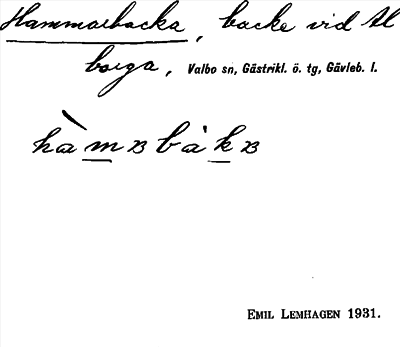 Hammarbacka, backe vid Äl
borga, Valbo sn, Gästrikl. ö. tg, Gävleb. l.
hàmʙbákʙ
EMIL LEMHAGEN 1931.